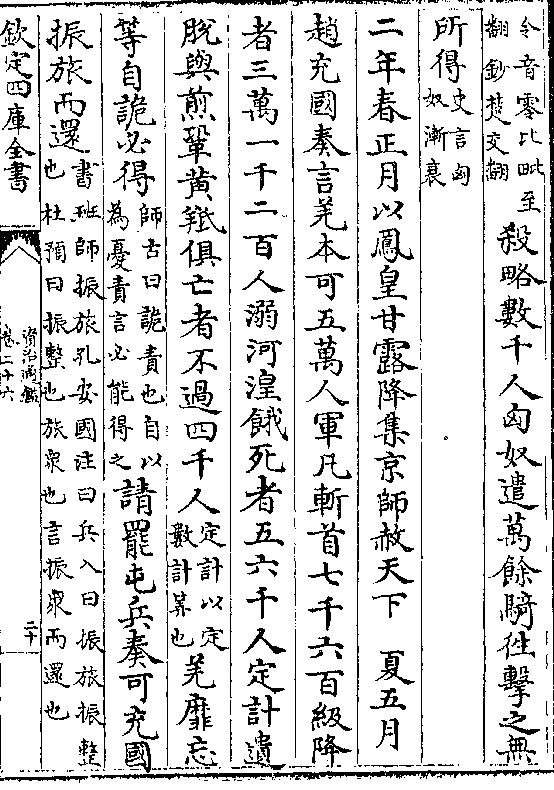 令音零比毗至
翻鈔楚交翻
殺略數千人匈奴遣萬餘騎往擊之無
所得
史言匈
奴漸衰
二年春正月以鳳皇甘露降集京師赦天下　夏五月
趙充國奏言羌本可五萬人軍凡斬首七千六百級降
者三萬一千二百人溺河湟餓死者五六千人定計遺
脫與煎鞏黄羝俱亡者不過四千人
定計以定
數計算也
羌靡忘
等自詭必得
師古曰詭責也自以
為憂責言必能得之
請罷屯兵奏可充國
振旅而還
書班師振旅孔安國注曰兵入曰振旅振整
也杜預曰振整也旅衆也言振衆而還也
欽定四庫全書
資治通鑑
卷二十六
二十